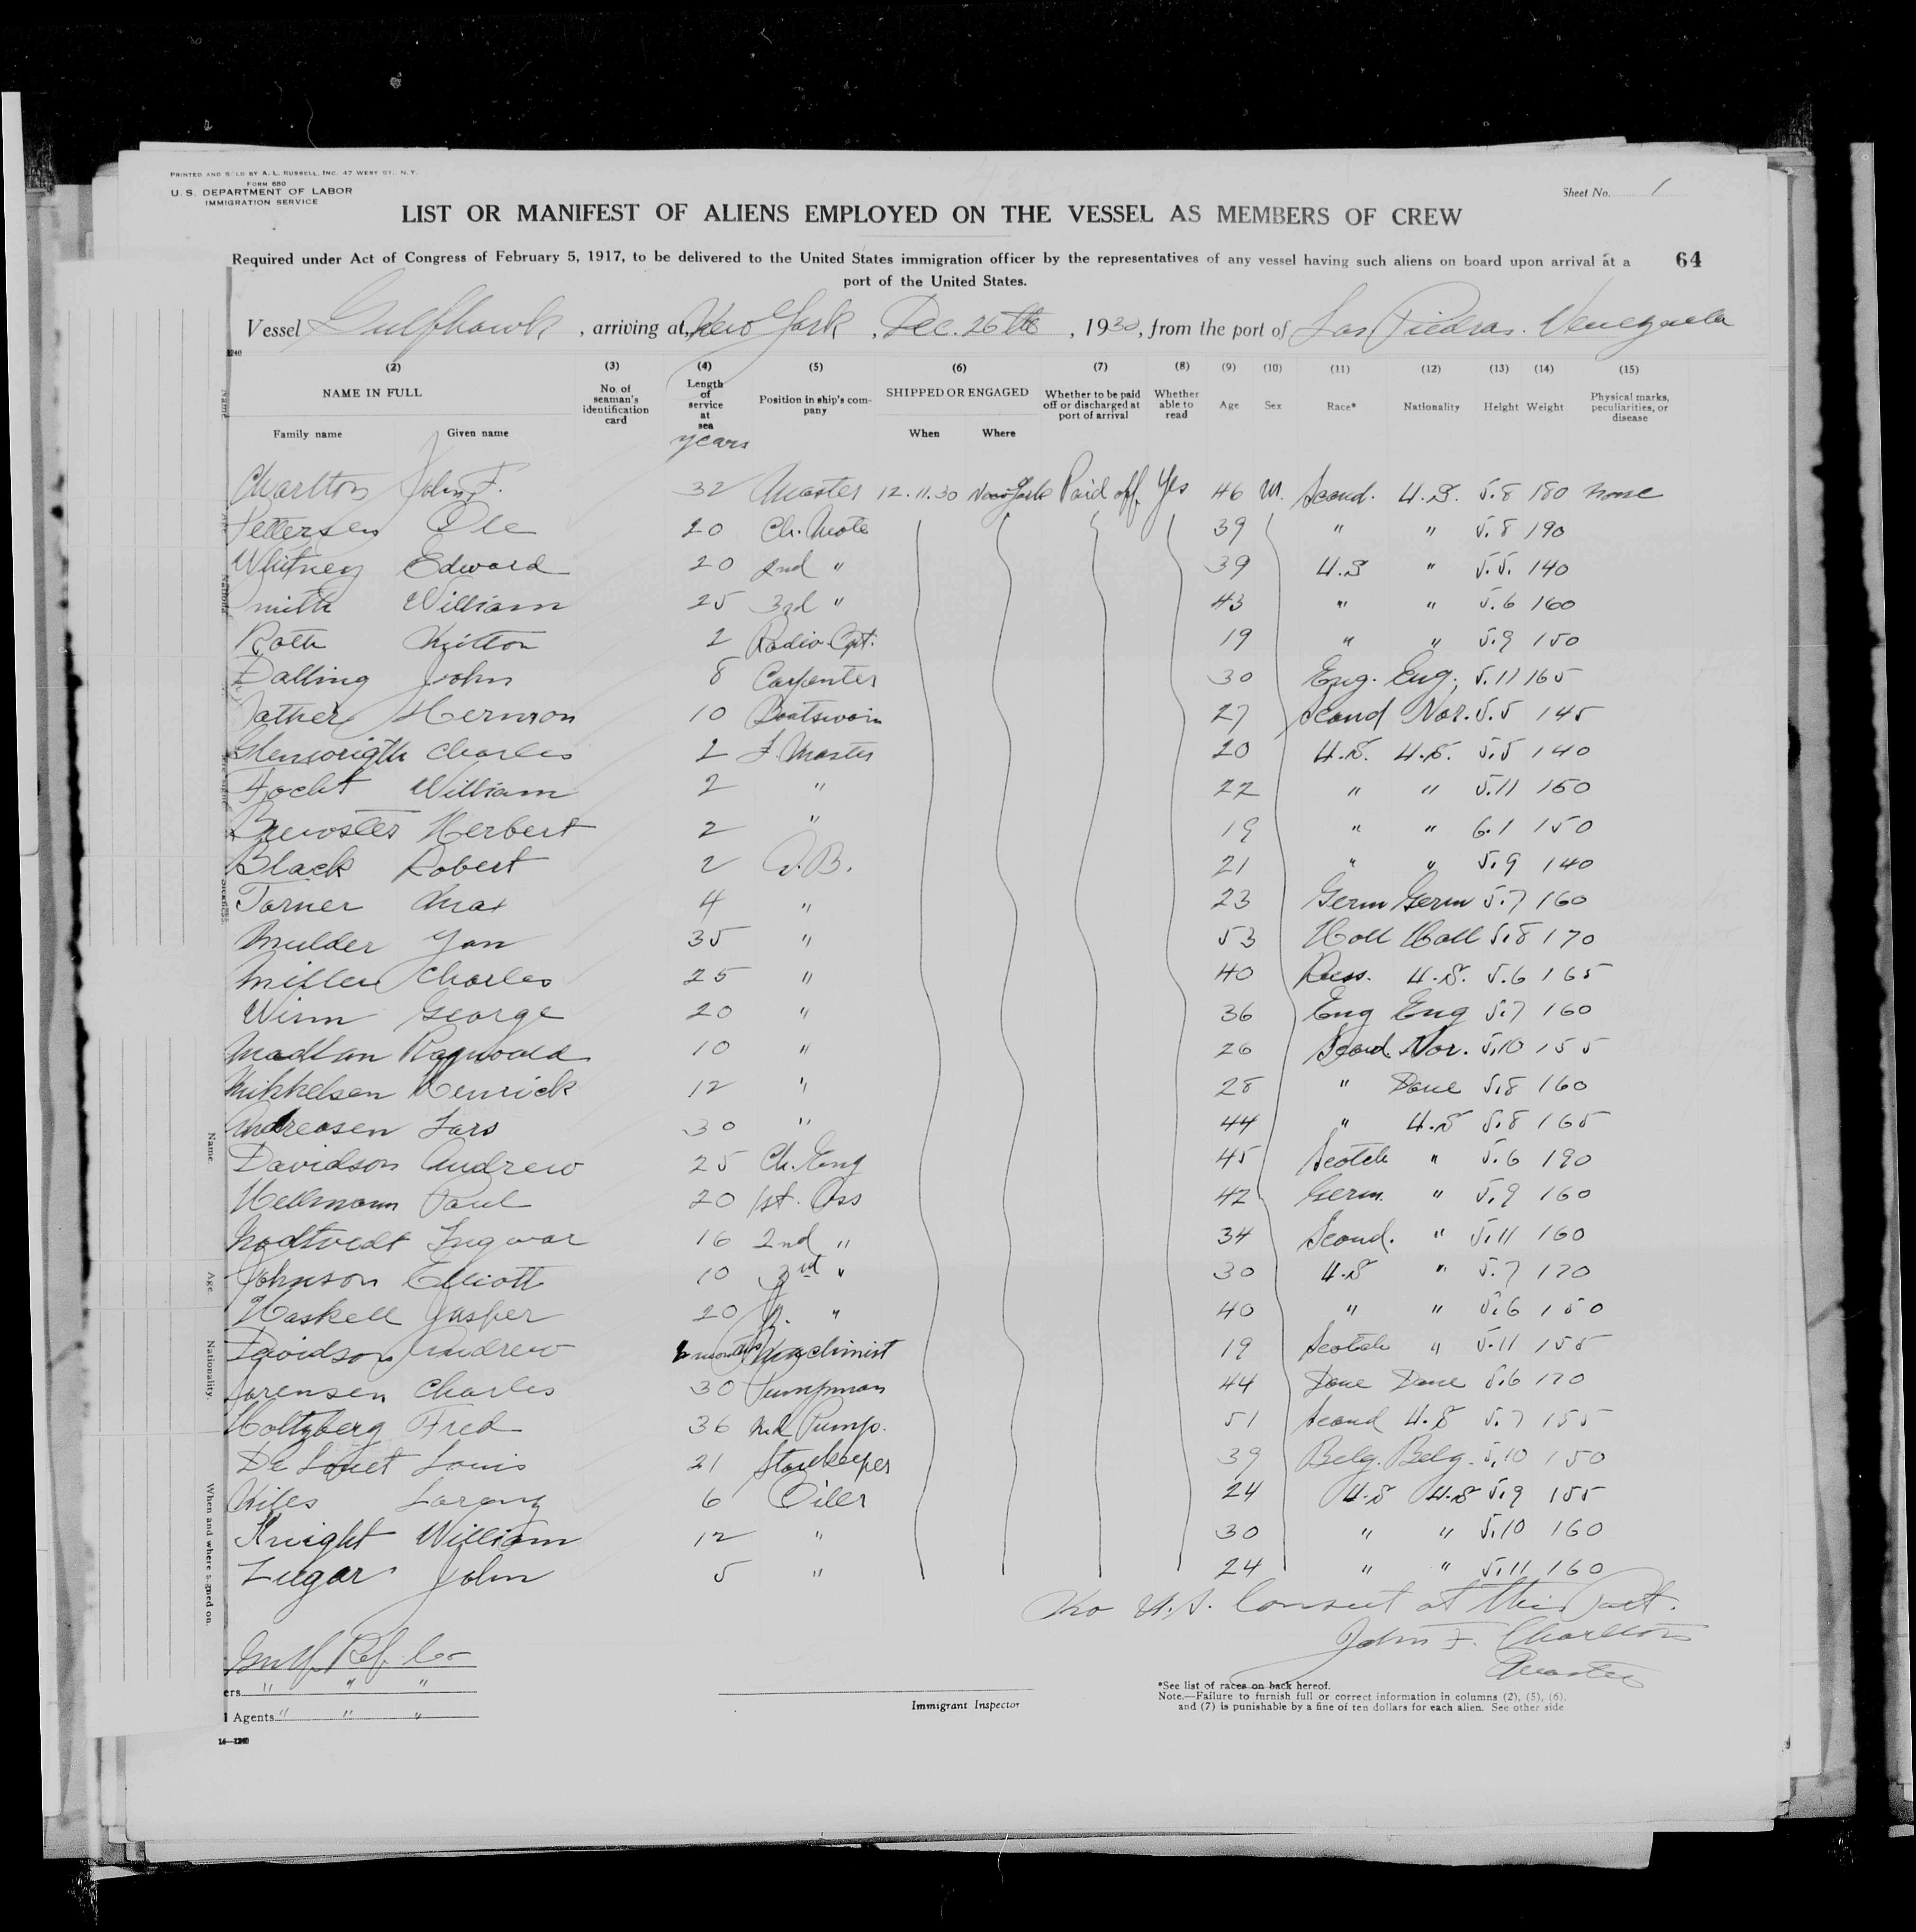 PRINTED AND SOLD BY A. L. RUSSELL, INC. 47 WEST ST., N.Y.
FORM 680
U. S. DEPARTMENT OF LABOR
IMMIGRATION SERVICE
Sheet No. 1
LIST OR MANIFEST OF ALIENS EMPLOYED ON THE VESSEL AS MEMBERS OF CREW
Required under Act of Congress of February 5, 1917, to be delivered to the United States immigration officer by the representatives of any vessel having such aliens on board upon arrival at a
port of the United States.
64
Vessel Gulfhawk, arriving at New York, Dec. 26th, 1930, from the port of Las Piedras. Venezuela
(2) (3) (4) (5) (6) (7) (8) (9) (10) (11) (12) (13) (14) (15)
NAME IN FULL No. of seaman's identification card Length of service at sea Position in ship's company SHIPPED OR ENGAGED Whether to be paid off or discharged at port of arrival Whether able to read Age Sex Race* Nationality Height Weight Physical marks, peculiarities, or disease
Family name Given name years When Where
Charlton John F. 32 Master 12.11.30 New York Paid off Yes 46 M. Scand. U.S. 5.8 180 none
Pettersen Ole 20 Ch. Mate 39 " " 5.8 190
Whitney Edward 20 2nd " 39 U.S " 5.5. 140
Smith William 25 3rd " 43 " " 5.6 160
Roth Milton 2 Radio Opt. 19 " " 5.9 150
Dalling John 8 Carpenter 30 Eng. Eng. 5.11 165
Herman 10 Boatswain 27 Scand Nor. 5.5 145
Charles 2 Master 20 U.S. U.S. 5.5 140
Focht William 2 " 22 " " 5.11 150
Brewster Herbert 2 " 19 " " 6.1 150
Black Robert 2 A.B. 21 " " 5.9 140
Torner Max 4 " 23 Germ Germ 5.7 160
Mulder Jan 35 " 53 Holl Holl 5.8 170
Miller Charles 25 " 40 Russ. U.S. 5.6 165
Winn George 20 " 36 Eng Eng 5.7 160
Madlan 10 " 26 Scand. Nor. 5.10 155
Mikkelsen Henrick 12 " 28 " Dane 5.8 160
Andreasen Lars 30 " 44 " U.S 5.8 165
Davidson Andrew 25 Ch. Eng 45 Scotch " 5.6 190
Hellmann Paul 20 1st. Ass 42 Germ. " 5.9 160
Nodtvedt Ingvar 16 2nd " 34 Scand. " 5.11 160
Johnson Elliott 10 3rd " 30 U.S " 5.7 170
Haskell Jasper 20 Jr. " 40 " " 5.6 150
Davidson Andrew months Machinist 19 Scotch " 5.11 155
Sorensen Charles 30 Pumpman 44 Dane Dane 5.6 170
Holtzberg Fred 36 2nd Pump. 51 Scand U.S 5.7 155
De Louis 21 Storekeeper 39 Belg. Belg. 5.10 150
Kiles Lorenz 6 Oiler 24 U.S U.S 5.9 155
Knight William 12 " 30 " " 5.10 160
Lugar John 5 " 24 " " 5.11 160
No U.S. Consul at this Port.
John F. Charlton
Master
Gulf Ref. Co
ers " " "
l Agents " " "
Immigrant Inspector
*See list of races on back hereof.
Note.—Failure to furnish full or correct information in columns (2), (5), (6),
and (7) is punishable by a fine of ten dollars for each alien. See other side
14—1240
Name.
Age.
Nationality.
When and where signed on.